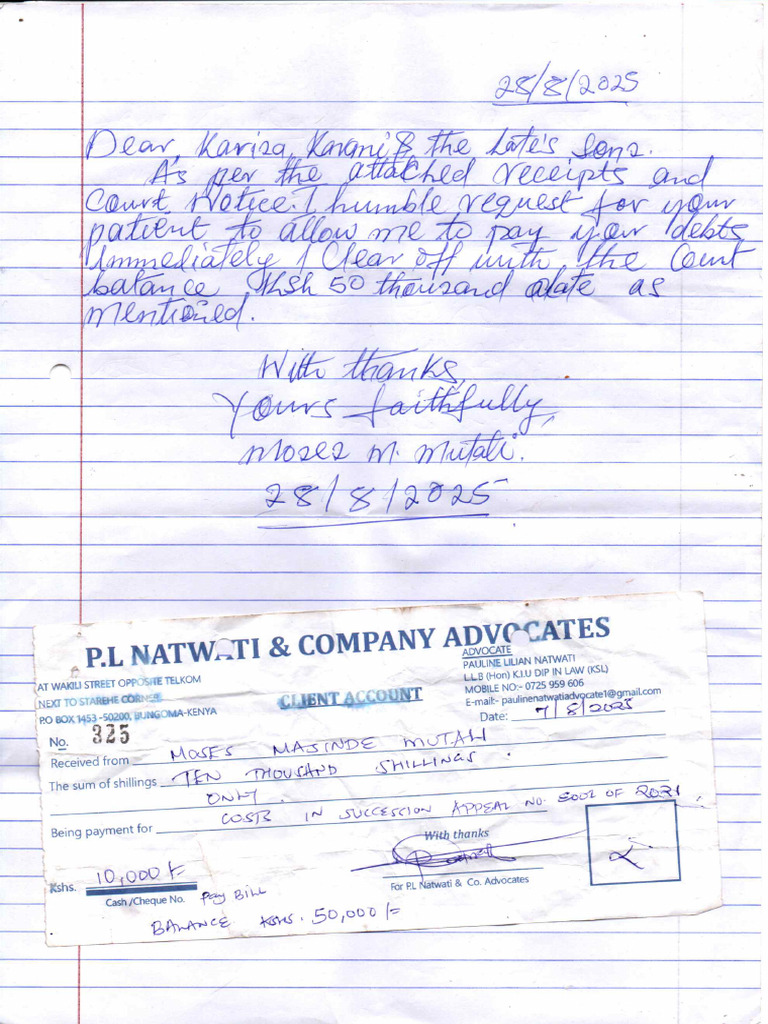 28/8/2025
Dear, Kariza, Knani & the Late's Sons.
As per the attached receipts and
Court Notice. I humble request for your
patient to allow me to pay your debts
immediately I Clear off with the Court
balance Ksh 50 thousand date as
mentioned.
With thanks,
Yours faithfully,
Moses M. Mutali.
28/8/2025
P.L NATWATI & COMPANY ADVOCATES
AT WAKILI STREET OPPOSITE TELKOM
NEXT TO STAREHE CORNER
P.O BOX 1453 -50200, BUNGOMA-KENYA
CLIENT ACCOUNT
ADVOCATE
PAULINE LILIAN NATWATI
L.L.B (Hon) K.I.U DIP IN LAW (KSL)
MOBILE NO:- 0725 959 606
E-mail:- paulinenatwatiadvocate1@gmail.com
Date: 7/8/2025
No. 325
Received from MOSES MAJINDE MUTALI
The sum of shillings TEN THOUSAND SHILLINGS
ONLY.
Being payment for COSTS IN SUCCESSION APPEAL NO. E002 OF 2021.
With thanks
Kshs. 10,000/=
Cash /Cheque No. Pay BILL
For P.L Natwati & Co. Advocates
BALANCE KSHS. 50,000/=